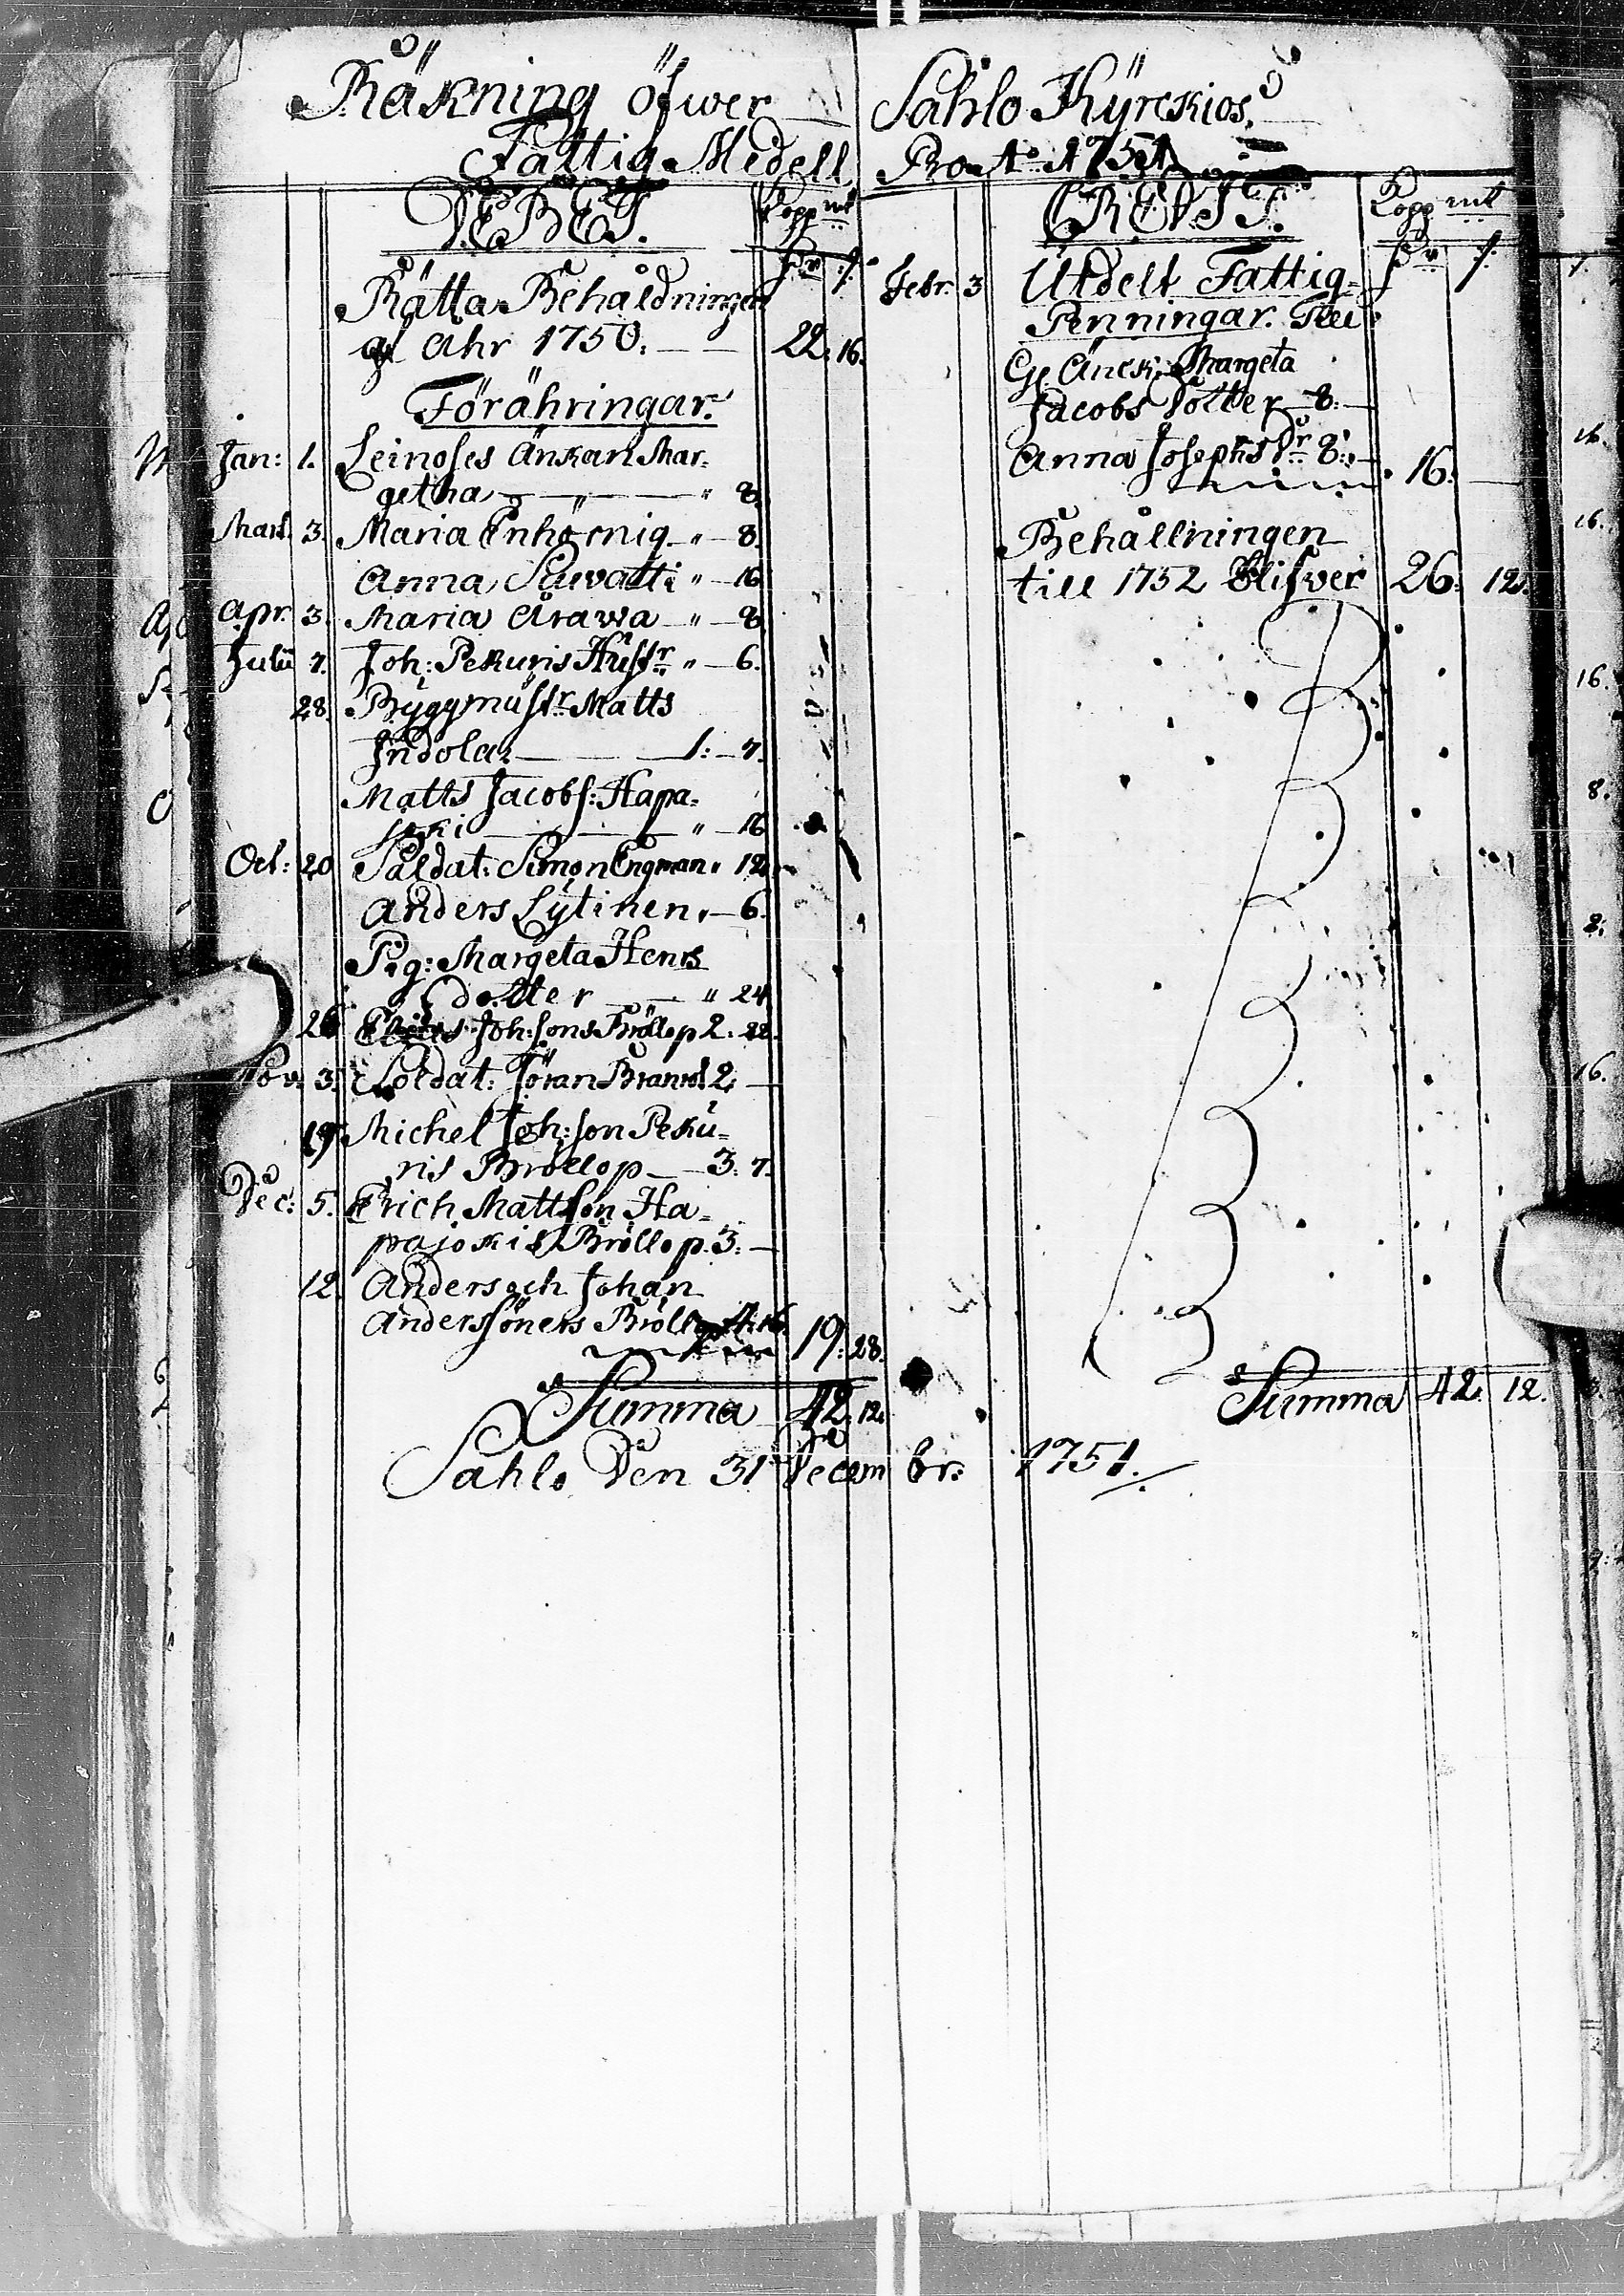 Räkning öfwer Sahlo Kyrckios
Fattig Medell Pro Ao 1751
DEBET. Kopp mt
Dr S:
Rätta Behåldningen
af Ahr 1750. 22: 16.
Förähringar.
Jan: 1. Leinoses Änkan Mar-
getha " 8.
Mart. 3. Maria Enhörnig " 8.
Anna " 16
Apr. 3. Maria Årawa " 8
Julii 7. Joh: Pekuris Hustr " 6.
28. Byggmästr Matts
Indola 1: 7.
Matts Jacobs: Hapa-
joki " 16
Oct: 20 Saldat: Simon Engman " 12
Anders Lytinen " 6.
Pig: Margeta Henrs
dotter " 24
26 Joh:sons Bröllop 2: 22.
Nov. 3. Soldat: Jöran Brandt 2:
19. Michel Joh:son Peku-
ris Bröllop 3: 7.
Dec: 5. Erich Mattson Ha-
pajokis Bröllop. 3:
12. Anders och Johan
Anderssöners Bröllop 4: 16. 19: 28.
Summa 42. 12.
CREDIT. Kopp mt
Dr S:
Febr. 3 Utdelt Fattig-
Penningar. Till
Gl. Änck: Margeta
Jacobs Dotter 8:
Anna Josephs Dr 8: 16.
Behållningen
till 1752 blifver 26: 12.
Summa 42. 12.
Sahlo Den 31 Decembr: 1751.